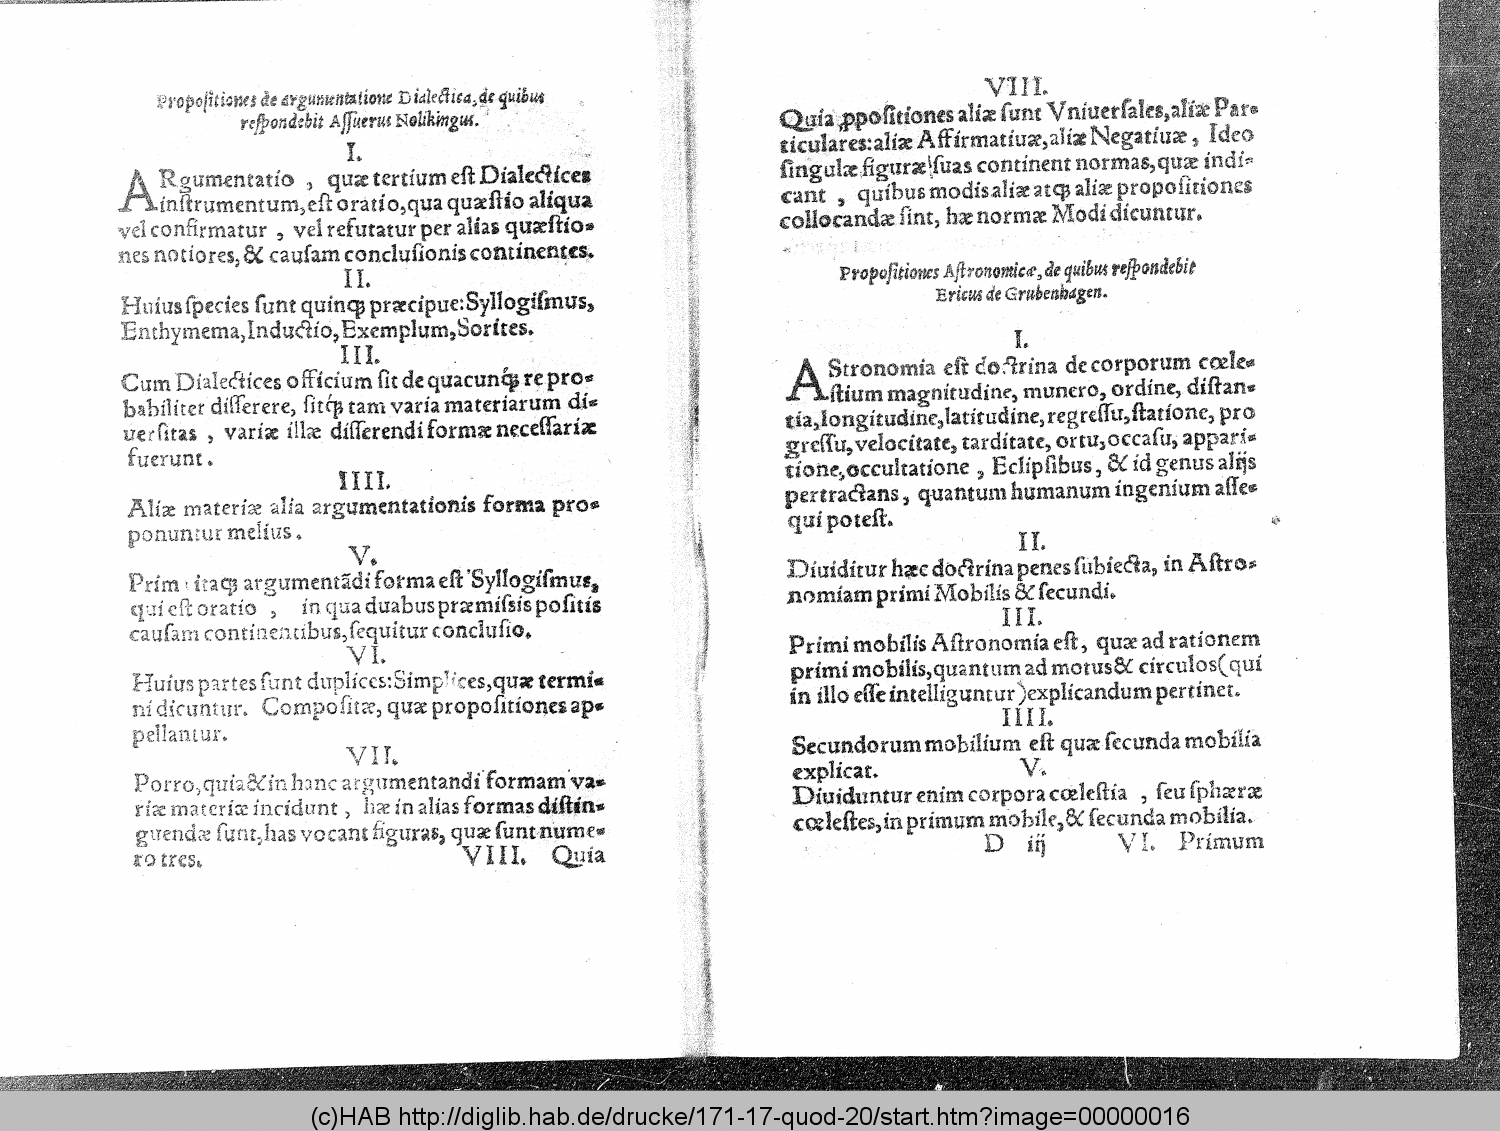 Propoſitiones de argumentatione Dialectica, de quibus
reſpondebit Aſſuerus Nolikingus.
I.
ARgumentatio , quæ tertium eſt Dialectices
inſtrumentum, eſt oratio, qua quæſtio aliqua
vel confirmatur , vel refutatur per alias quæſtio⸗
nes notiores, & cauſam concluſionis continentes.
II.
Huius ſpecies ſunt quinqꝫ præcipue: Syllogiſmus,
Enthymema, Inductio, Exemplum, Sorites.
III.
Cum Dialectices officium ſit de quacunqꝫ́ re pro⸗
babiliter diſſerere, ſitqꝫ́ tam varia materiarum di⸗
uerſitas , variæ illæ diſſerendi formæ neceſſariæ
fuerunt.
IIII.
Aliæ materiæ alia argumentationis forma pro⸗
ponuntur melius.
V.
Prima itaqꝫ argumentãdi forma eſt Syllogiſmus,
qui eſt oratio , in qua duabus præmiſsis poſitis
cauſam continentibus, ſequitur concluſio.
VI.
Huius partes ſunt duplices: Simplices, quæ termi⸗
ni dicuntur. Compoſitæ, quæ propoſitiones ap⸗
pellantur.
VII.
Porro, quia & in hanc argumentandi formam va⸗
riæ materiæ incidunt , hæ in alias formas diſtin⸗
guendæ ſunt, has vocant figuras, quæ ſunt nume⸗
ro tres.
VIII. Quia
VIII.
Quia ꝓpoſitiones aliæ ſunt Vniuerſales, aliæ Par⸗
ticulares: aliæ Affirmatiuæ, aliæ Negatiuæ , Ideo
ſingulæ figuræ ſuas continent normas, quæ indi⸗
cant , quibus modis aliæ atqꝫ aliæ propoſitiones
collocandæ ſint, hæ normæ Modi dicuntur.
Propoſitiones Aſtronomicæ, de quibus reſpondebit
Ericus de Grubenhagen.
I.
AStronomia eſt doctrina de corporum cœle⸗
ſtium magnitudine, munero, ordine, diſtan⸗
tia, longitudine, latitudine, regreſſu, ſtatione, pro
greſſu, velocitate, tarditate, ortu, occaſu, appari⸗
tione, occultatione , Eclipſibus, & id genus alijs
pertractans, quantum humanum ingenium aſſe⸗
qui poteſt.
II.
Diuiditur hæc doctrina penes ſubiecta, in Aſtro⸗
nomiam primi Mobilis & ſecundi.
III.
Primi mobilis Aſtronomia eſt, quæ ad rationem
primi mobilis, quantum ad motus & circulos (qui
in illo eſſe intelliguntur) explicandum pertinet.
IIII.
Secundorum mobilium eſt quæ ſecunda mobilia
explicat. V.
Diuiduntur enim corpora cœleſtia , ſeu ſphæræ
cœleſtes, in primum mobile, & ſecunda mobilia.
D iij VI. Primum
(c)HAB http://diglib.hab.de/drucke/171-17-quod-20/start.htm?image=00000016